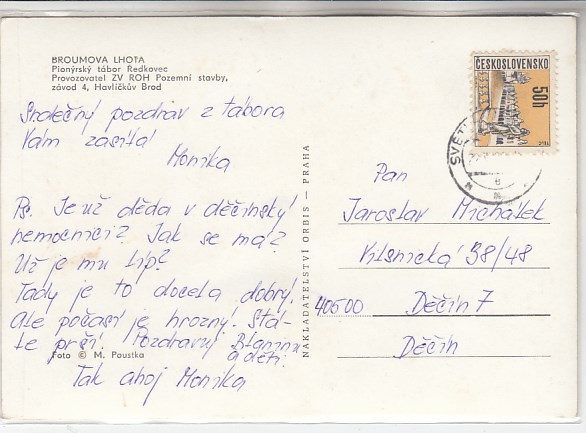 BROUMOVA LHOTA
Pionýrský tábor Ředkovec
Provozovatel ZV ROH Pozemní stavby,
závod 4, Havlíčkův Brod
Srdečný pozdrav z tábora
Vám zasílá
Monika
Ps. Je už děda v děčínský
nemocnici? Jak se má?
Už je mu líp?
Tady je to docela dobrý,
Ale počasí je hrozný! Stá-
le prší. Pozdravuj
a děti.
Foto © M. Poustka
Tak ahoj Monika
NAKLADATELSTVÍ ORBIS — PRAHA
ČESKOSLOVENSKO
50h
SVĚTL
Pan
Jaroslav Michálek
38/48
40500 Děčín 7
Děčín